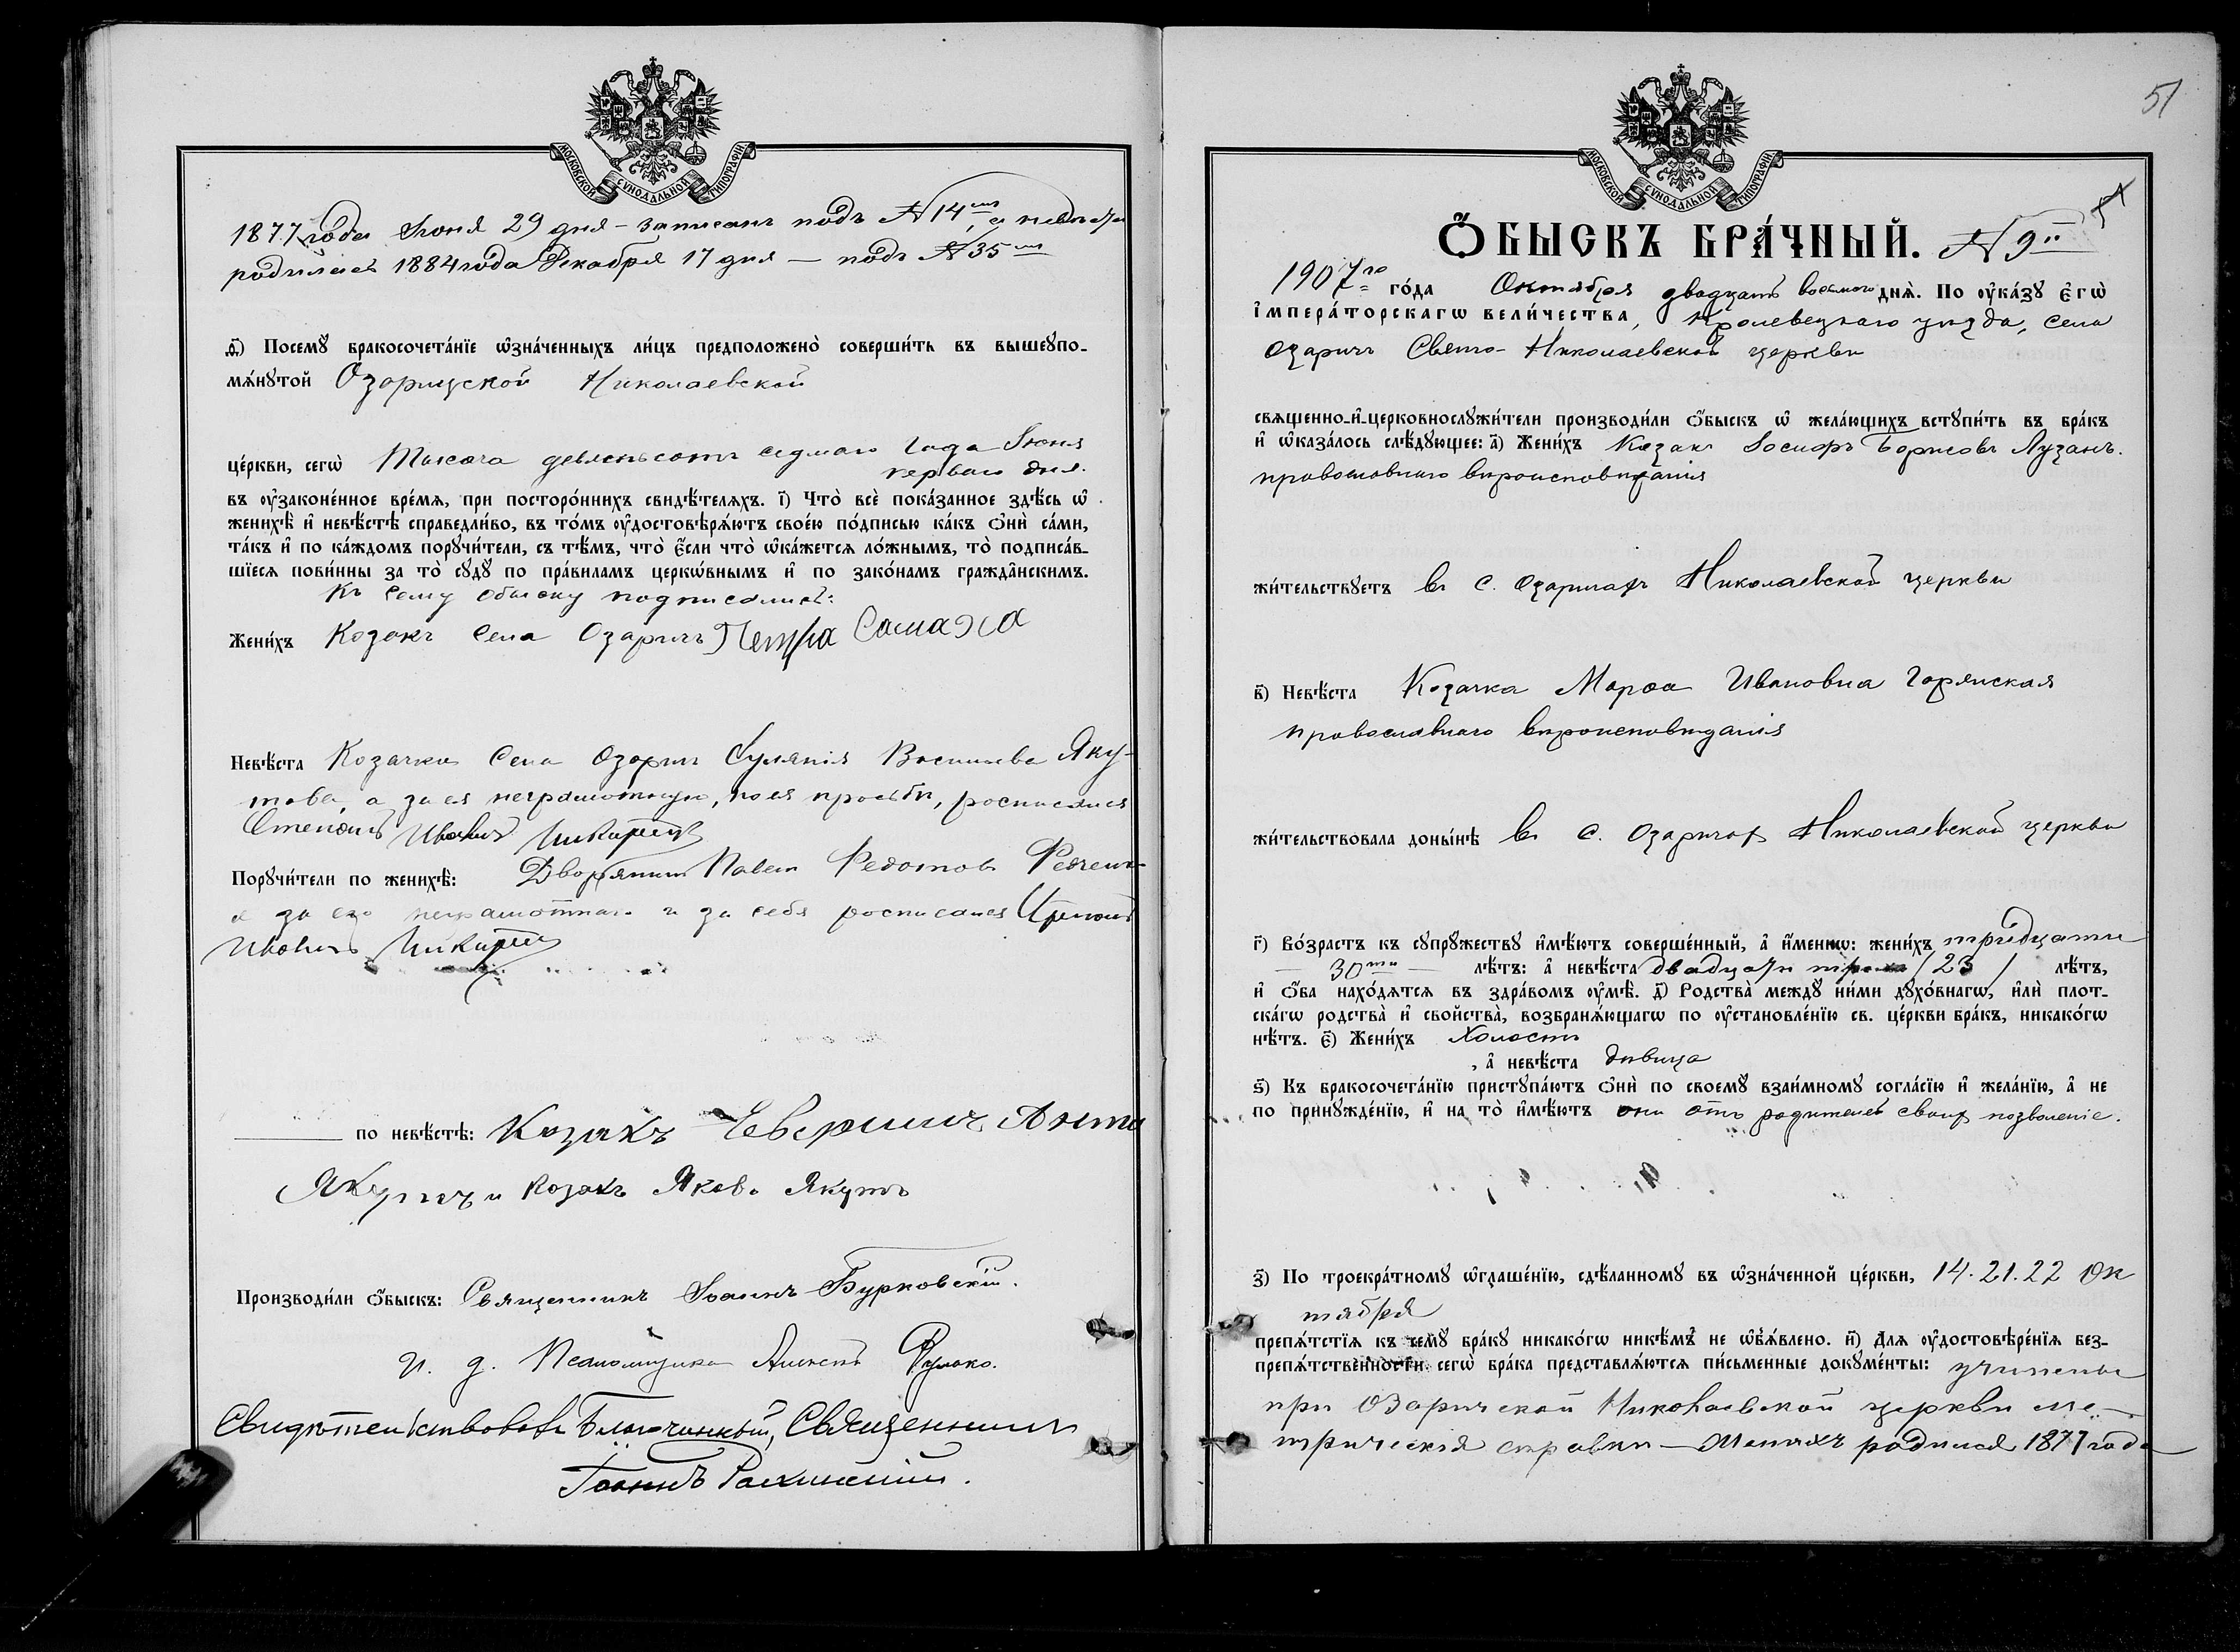 МОСКОВСКОЙ СѴНОДАЛЬНОЙ ТИПОГРАФІИ
1877 года Іюня 29 дня – записанъ подъ №14мъ, а невѣста
родилась 1884 года Декабря 17 дня — подъ №35мъ
д҃і) Посемꙋ бракосочета́нїе ѡ҆зна́ченныхъ ли́цъ предположено̀ соверши́ть въ вышеꙋпо-
мѧ́нꙋтой Озаричской Николаевской
це́ркви, сегѡ̀ Тысяча девятьсотъ седмаго года Іюня
перваго дня.
въ ᲂу҆законе́нное вре́мѧ, при посторо́ннихъ свидѣ́телѧхъ. і҃) Что̀ всѐ пока́занное здѣ́сь ѡ҆
женихѣ̀ и҆ невѣ́стѣ справедли́во, въ то́мъ ᲂу҆достовѣрѧ́ютъ свое́ю по́дписью ка́къ ѻ҆нѝ са́ми,
та́къ и҆ по ка́ждомъ порꙋчи́тели, съ тѣ́мъ, что̀ є҆́сли что̀ ѡ҆ка́жетсѧ ло́жнымъ, то̀ подписа́в-
шїесѧ пови́нны за то̀ сꙋдꙋ̀ по пра́виламъ церкѡ́внымъ и҆ по зако́намъ гражда̑нскимъ.
Къ сему обыску подписались:
Жени́хъ Козакъ села Озаричъ Петра Самаха
Невѣ́ста Козачка села Озаричъ Васильева Яку-
това, а за ея неграмотную, по ея просьбѣ, росписался
Иванъ
Порꙋчи́тели по женихѣ̀: Дворянинъ Павелъ Федотовъ
а за его неграмотнаго и за себя росписался
Иванъ
по невѣ́стѣ: Козакъ
и козакъ Яковъ Якутъ
Производи́ли ѻ҆́быскъ: Священникъ Іоаннъ Бурковскій.
и. д. Псаломщика Алексѣй
Свидѣтельствовалъ Благочинный, Священникъ
Іоаннъ
51
МОСКОВСКОЙ СѴНОДАЛЬНОЙ ТИПОГРАФІИ
Ѻ҆́БЫСКЪ БРА́ЧНЫЙ. №9й
1907го го́да Октября двадцать восьмого днѧ̀. По ᲂу҆ка́зꙋ є҆гѡ̀
і҆мпера́торскагѡ вели́чества, Кролевецкаго уѣзда, села
Озаричъ Свято-Николаевской церкви
свѧщенно-и҆-церковнослꙋжи́тели производи́ли ѻ҆́быскъ ѡ҆ жела́ющихъ встꙋпи́ть въ бра́къ
и҆ ѡ҆каза́лось слѣ́дꙋющее: а҃) Жени́хъ Козакъ Іосифъ Борисовъ Лузанъ.
православнаго вѣроисповѣданія
жи́тельствꙋетъ въ с. Озаричахъ Николаевской церкви
в҃) Невѣ́ста Козачка Марѳа Ивановна Горянская
православнаго вѣроисповѣданія
жи́тельствовала доны́нѣ въ с. Озаричах Николаевской церкви
г҃) Во́зрастъ къ сꙋпрꙋ́жествꙋ и҆мѣ́ютъ соверше́нный, а҆ и҆́меннѡ: жени́хъ тридцати
— 30ти — лѣ́тъ: а҆ невѣ́ста двадцати трехъ /23/ лѣ́тъ,
и҆ ѻ҆́ба нахо́дѧтсѧ въ здра́вомъ ᲂу҆мѣ̀. д҃) Родства̀ междꙋ̀ ни́ми дꙋхо́внагѡ, и҆лѝ плот-
ска́гѡ родства̀ и҆ свойства̀, возбранѧ́ющагѡ по ᲂу҆становле́нїю св. це́ркви бра́къ, никако́гѡ
нѣ́тъ. є҃) Жени́хъ Холостъ
, а҆ невѣ́ста дѣвица
ѕ҃) Къ бракосочета́нїю пристꙋпа́ютъ ѻ҆нѝ по своемꙋ̀ взаи́мномꙋ согла́сїю и҆ жела́нїю, а҆ не
по принꙋжде́нїю, и҆ на то̀ и҆мѣ́ютъ они отъ родителей своих позволеніе.
з҃) По троекра́тномꙋ ѡ҆глаше́нїю, сдѣ́ланномꙋ въ ѡ҆зна́ченной це́ркви, 14. 21. 22 Ок
тября
препѧ́тстїѧ къ семꙋ̀ бра́кꙋ никако́гѡ никѣ́мъ не ѡ҆б̾ѧ́влено. и҃) Длѧ ᲂу҆достовѣре́нїѧ без-
препѧ́тственности сегѡ̀ бра́ка представлѧ́ютсѧ пи́сьменные докꙋме́нты: учинены
при Озаричской Николаевской церкви ме-
трическія справки — Женихъ родился 1877 года